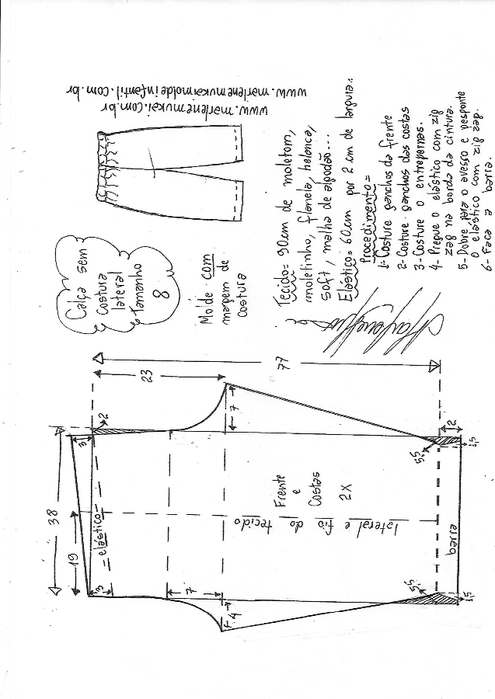 www.marlenemukaimoldeinfantil.com.br
www.marlenemukai.com.br
Calça sem
costura
lateral
Tamanho
8
Molde com
margem de
costura
Tecido= 90cm de moletom,
moletinho, flanela, helanca,
soft, malha de algodão...
Elástico= 60cm por 2 cm de largura.:
Procedimento=
1- Costure ganchos da frente
2- Costure ganchos das costas
3- Costure o entrepernas.
4- Pregue o elástico com zig
zag na borda da cintura.
5- Dobre para o avesso e pesponte
o elástico com zig zag.
6- Faça a barra.
77
23
38
19
2
3
7
elástico
Frente
e
Costas
2X
lateral e fio do tecido
barra
5,5
2
1,5
3
7
F.4
5,5
1,5